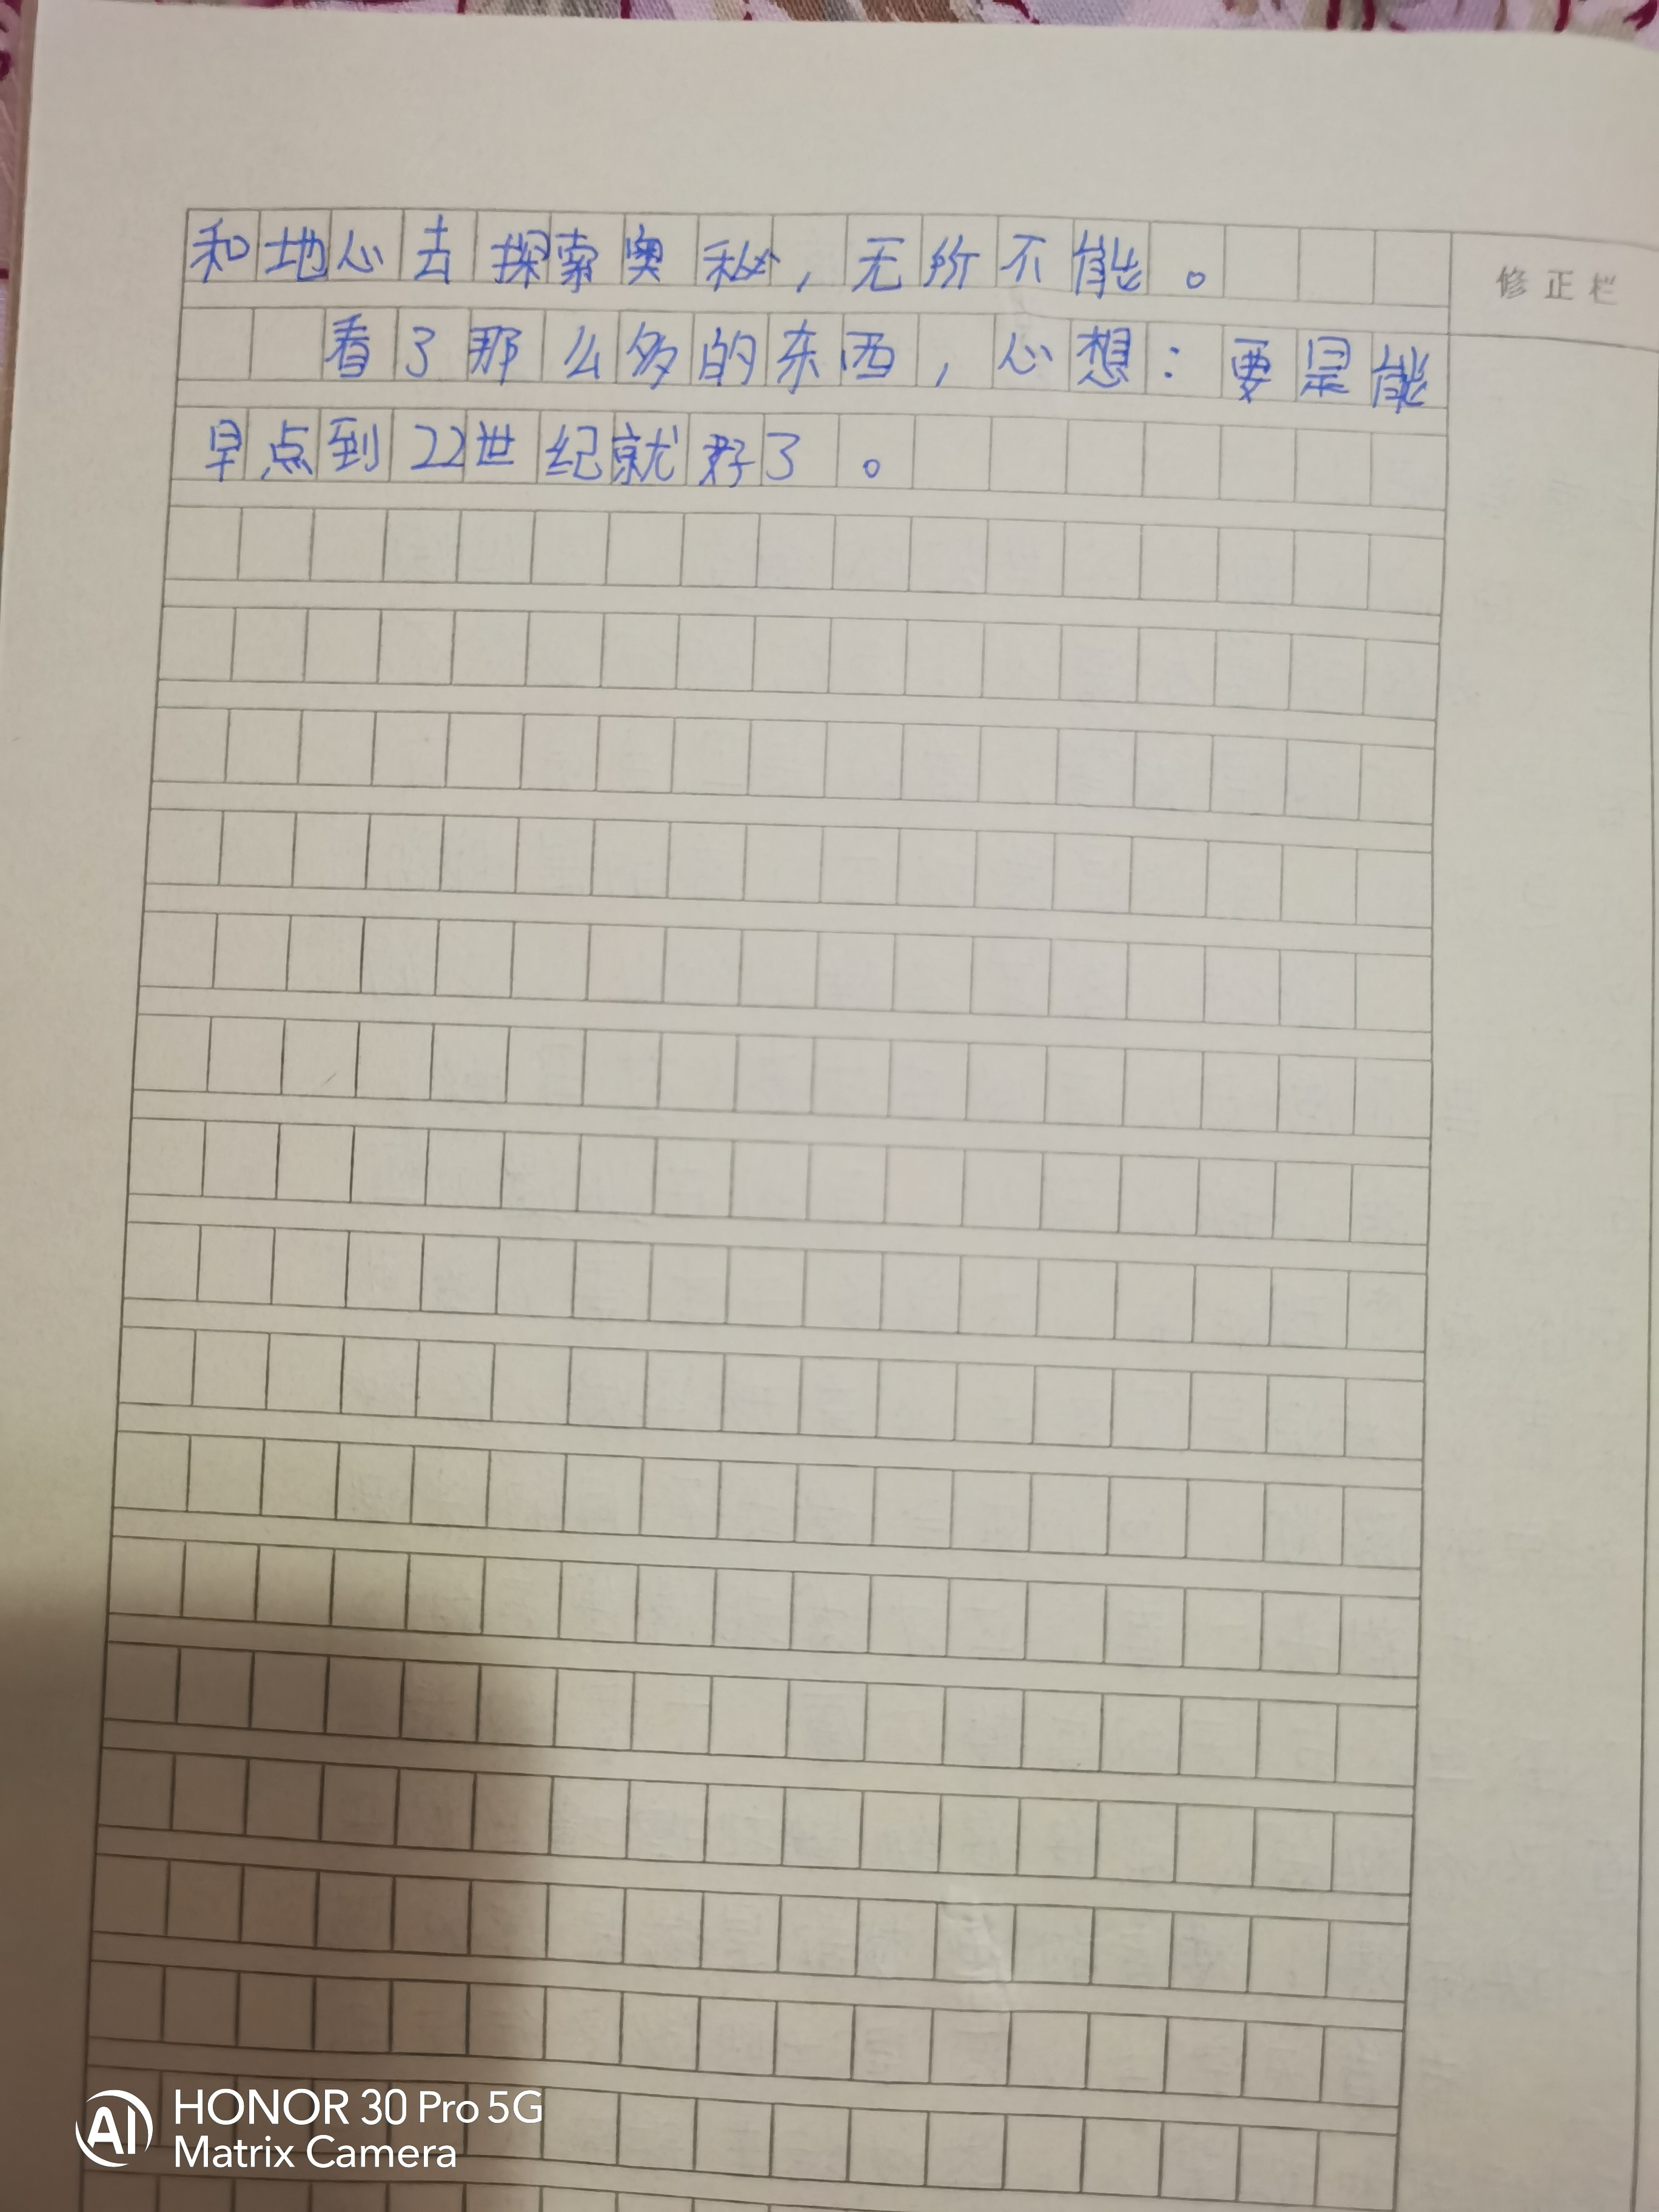 和地心去探索奥秘，无所不能。
修正栏
看了那么多的东西，心想：要是能
早点到22世纪就好了。
HONOR 30 Pro 5G
Matrix Camera
AI